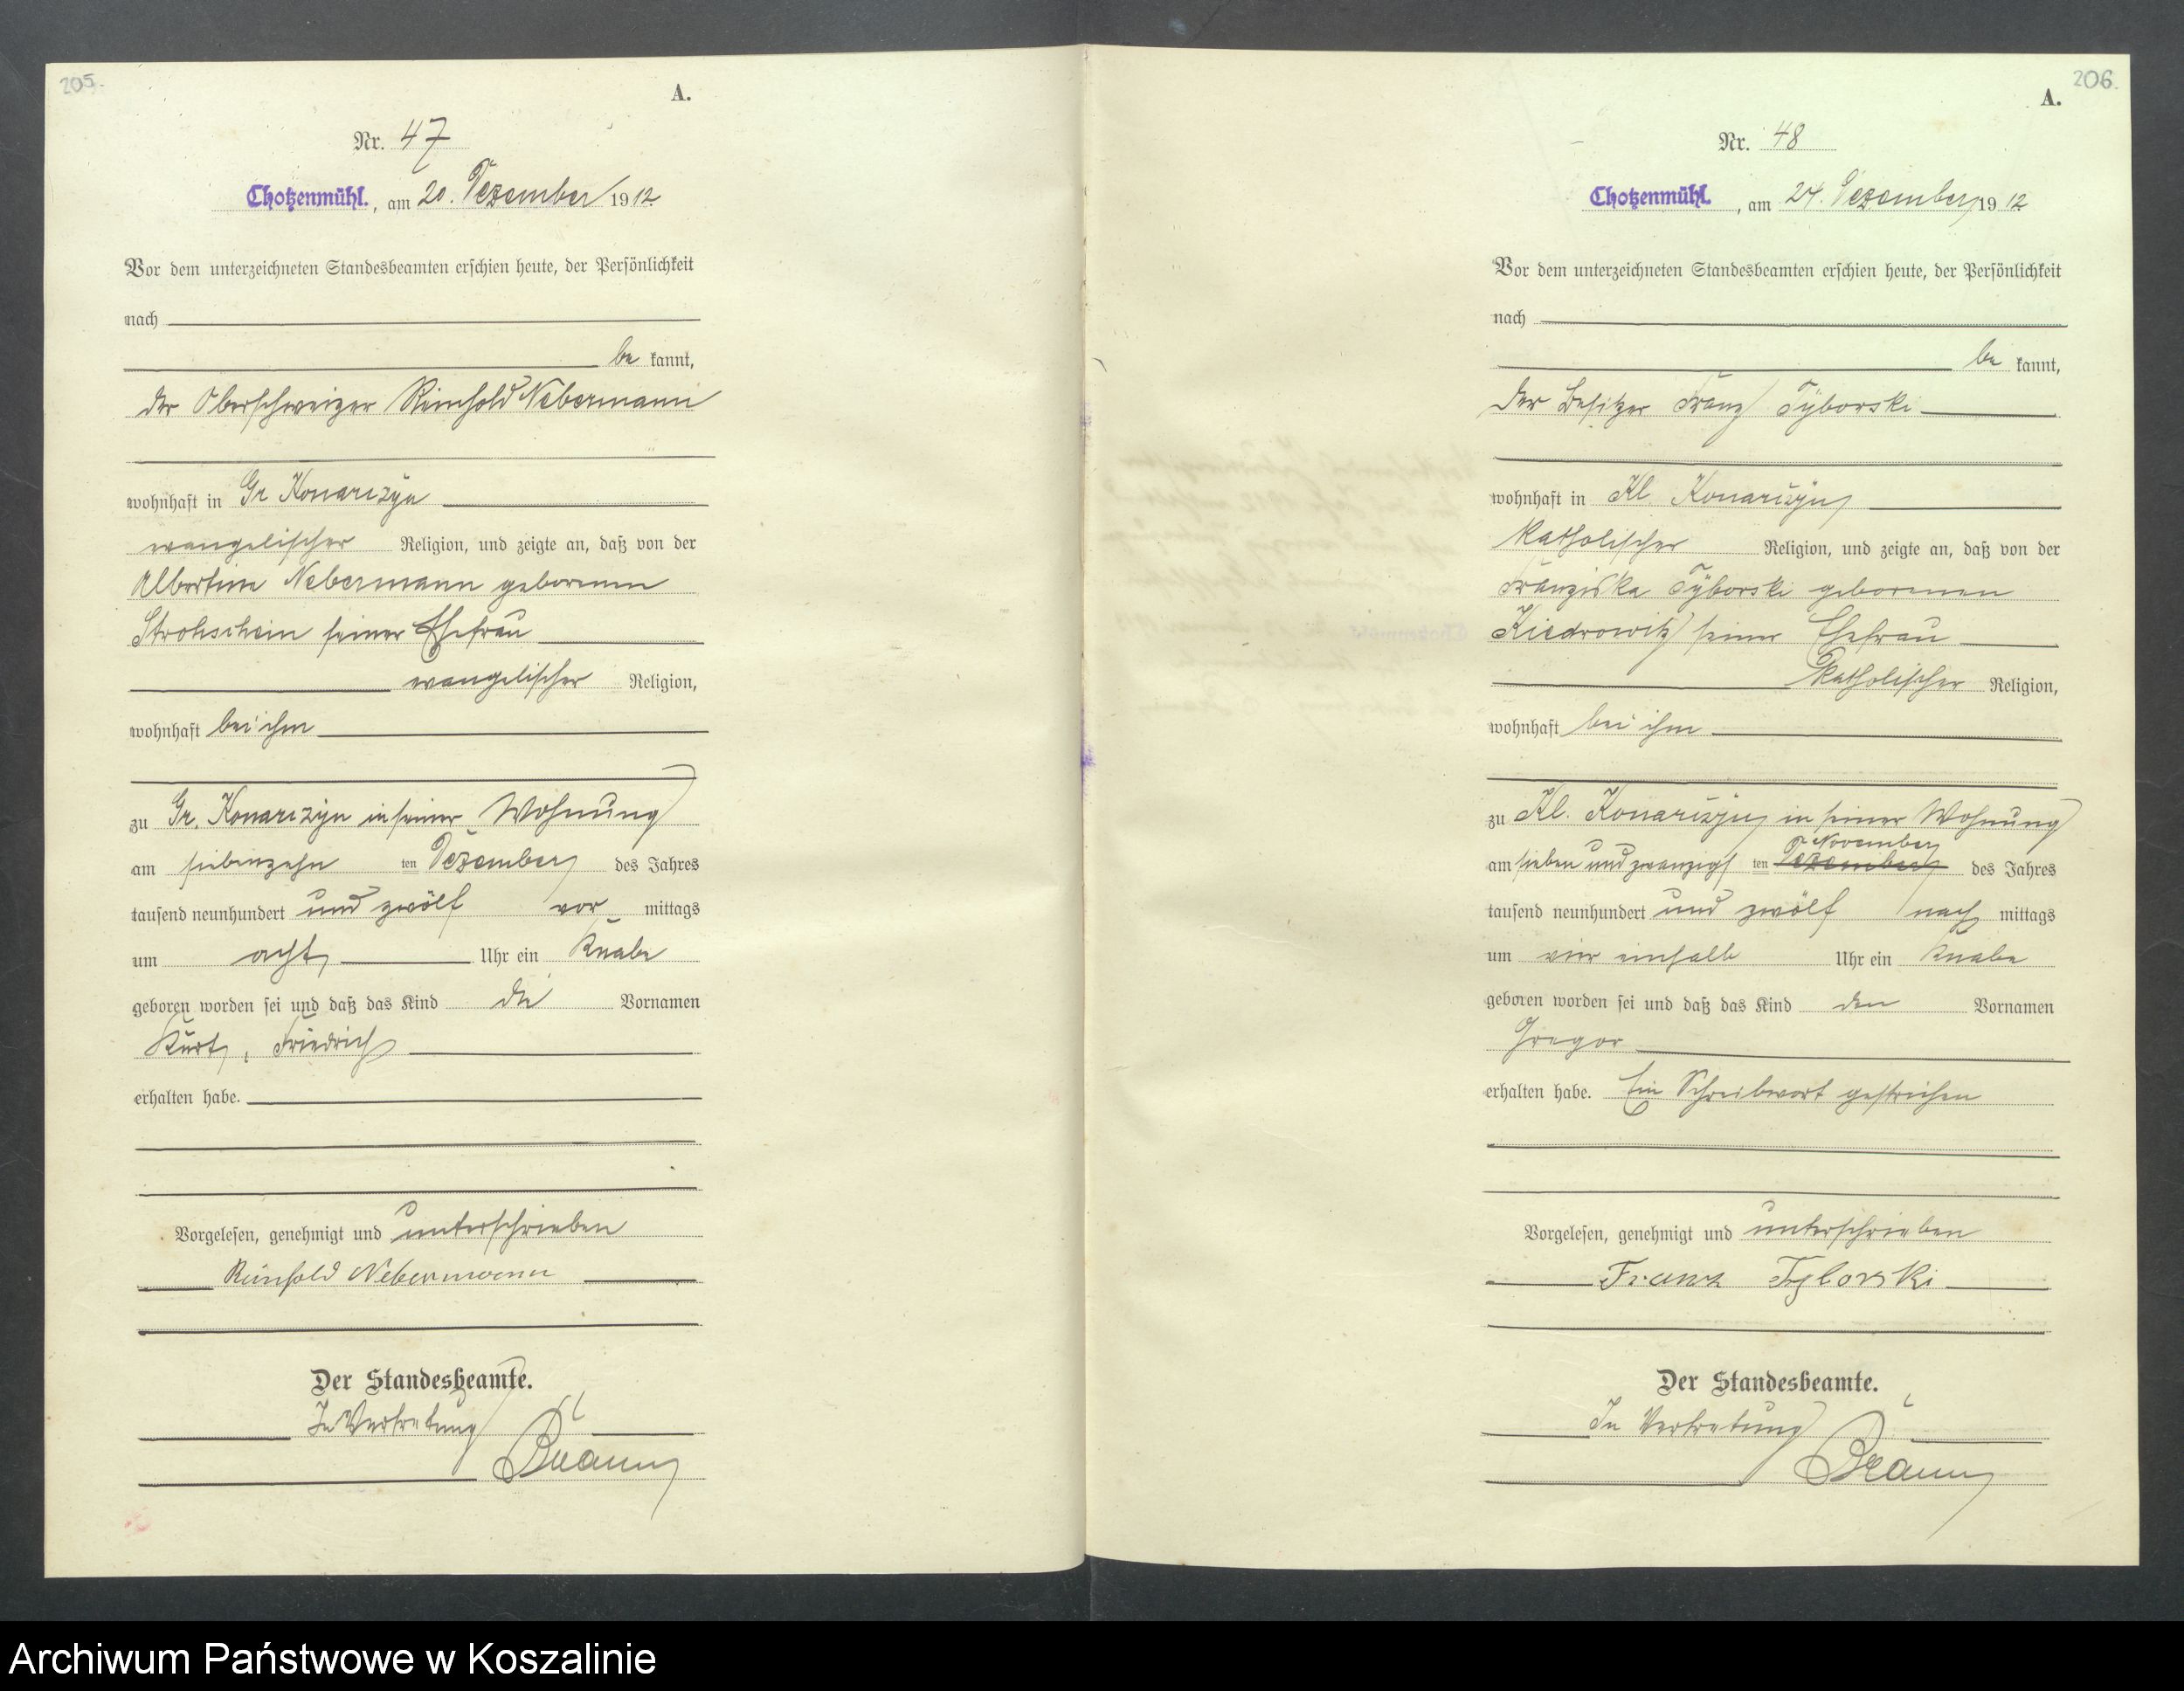 205.
A.
Nr. 47
Chotzenmühl., am 20. Dezember 1912
Vor dem unterzeichneten Standesbeamten erschien heute, der Persönlichkeit
nach
be kannt,
der Oberschweizer Reinhold Nebermann
wohnhaft in Gr Konarczyn
evangelischer Religion, und zeigte an, daß von der
Albertine Nebermann geborenen
Strohschein seiner Ehefrau
evangelischer Religion,
wohnhaft bei ihm
zu Gr. Konarczyn in seiner Wohnung
am siebenzehn ten Dezember des Jahres
tausend neunhundert und zwölf vor mittags
um acht Uhr ein Knabe
geboren worden sei und daß das Kind die Vornamen
Kurt, Friedrich
erhalten habe.
Vorgelesen, genehmigt und unterschrieben
Reinhold Nebermann
Der Standesbeamte.
In Vertretung
206.
A.
Nr. 48
Chotzenmühl., am 24. Dezember 1912
Vor dem unterzeichneten Standesbeamten erschien heute, der Persönlichkeit
nach
be kannt,
der Besitzer Franz Tyborski
wohnhaft in Kl. Konarczyn
katholischer Religion, und zeigte an, daß von der
Franziska Tyborski geborenen
Kiedrowitz seiner Ehefrau
katholischer Religion,
wohnhaft bei ihm
zu Kl. Konarczyn in seiner Wohnung
November
am sieben und zwanzigs ten Dezember des Jahres
tausend neunhundert und zwölf nach mittags
um vier einhalb Uhr ein Knabe
geboren worden sei und daß das Kind den Vornamen
Gregor
erhalten habe. Ein Schreibwort gestrichen
Vorgelesen, genehmigt und unterschrieben
Franz Tyborski
Der Standesbeamte.
In Vertretung
Archiwum Państwowe w Koszalinie